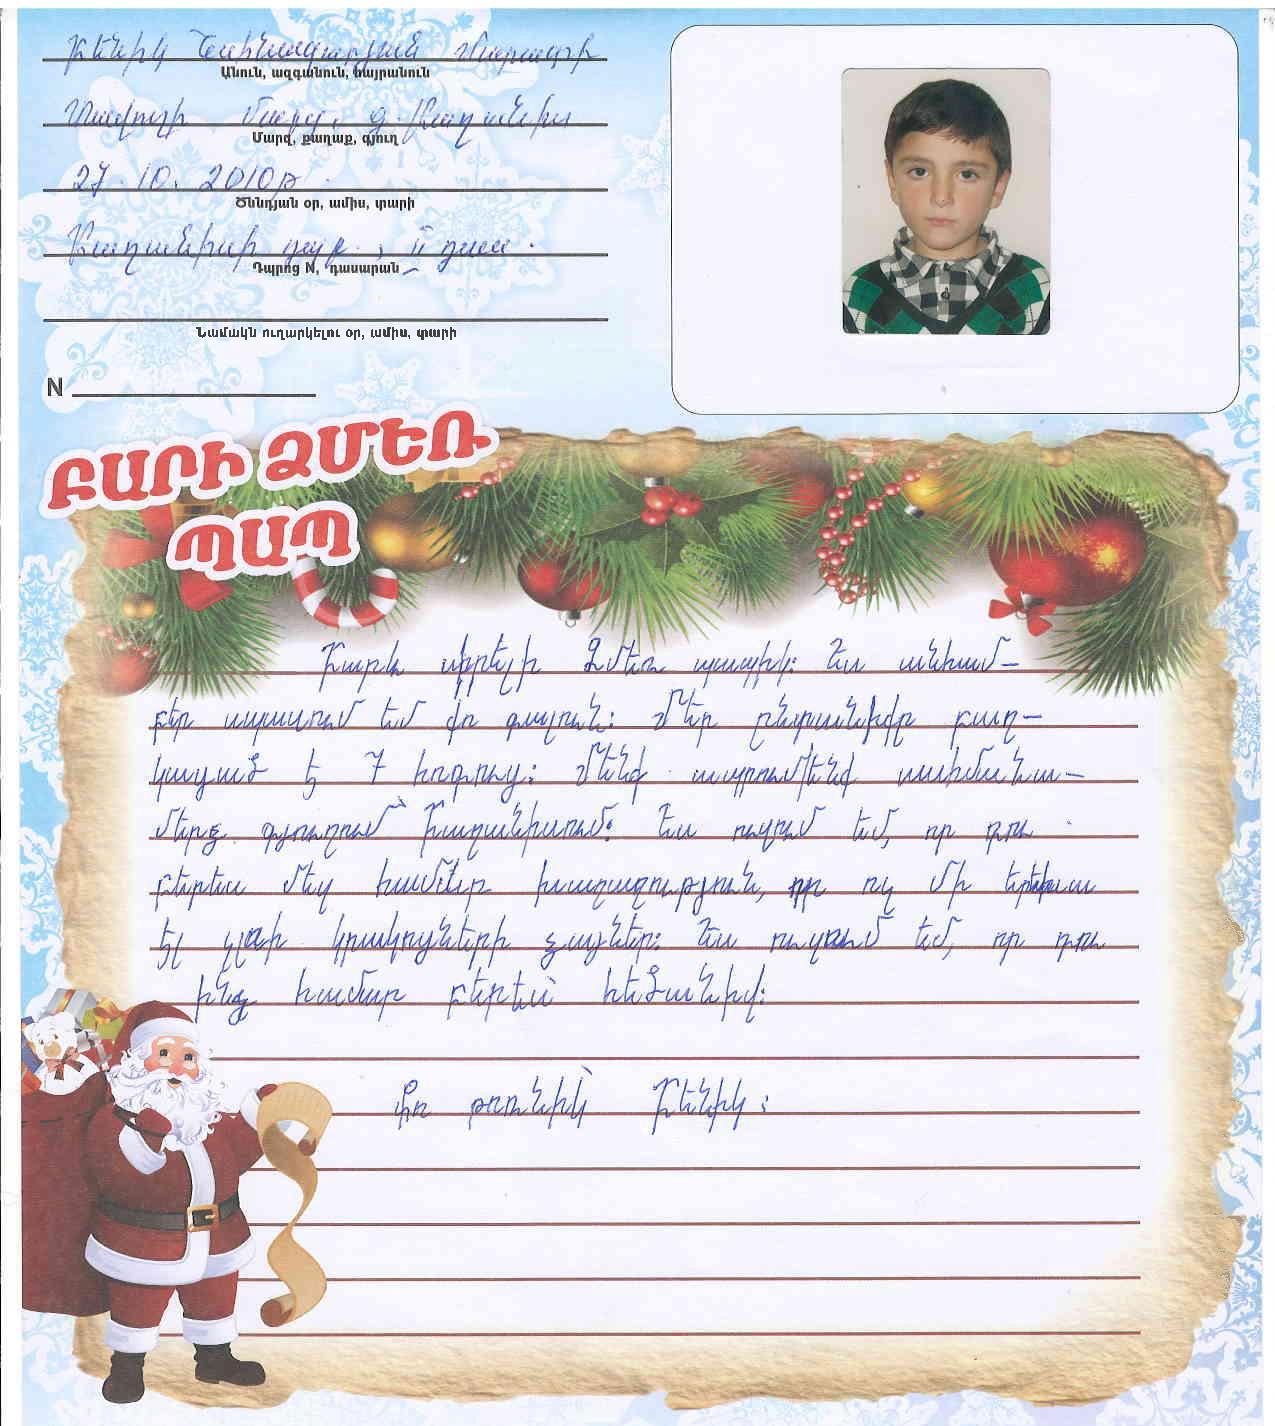 Բենիկ Շահնազարյան
Անուն, ազգանուն, հայրանուն
Տավուշի մարզ, գ. Բաղանիս
Մարզ, քաղաք, գյուղ
27. 10. 2010թ.
Ծննդյան օր, ամիս, տարի
Բաղանիսի դպր., II դաս.
Դպրոց N, դասարան
Նամակն ուղարկելու օր, ամիս, տարի
N
ԲԱՐԻ ՁՄԵՌ
ՊԱՊ
Բարև սիրելի Ձմեռ պապիկ: Ես անհամ-
բեր սպասում եմ քո գալուն: Մեր ընտանիքը բաղ-
կացած է 7 հոգուց: Մենք ապրում ենք սահմանա-
մերձ գյուղում՝ Բաղանիսում: Ես ուզում եմ, որ դու
բերես մեզ համար խաղաղություն, որ ոչ մի երեխա
էլ չլսի կրակոցների ձայներ: Ես ուզում եմ, որ դու
ինձ համար բերես հեծանիվ:
Քո թոռնիկ՝ Բենիկ: